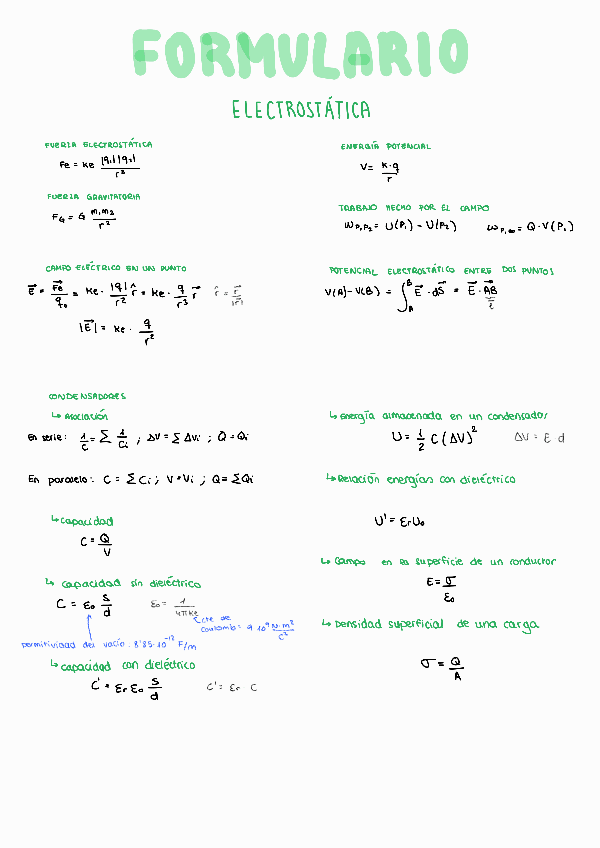 FORMULARIO
ELECTROSTÁTICA
FUERZA ELECTROSTÁTICA
Fe = Ke |q₁||q₂| / r²
FUERZA GRAVITATORIA
F_G = G m₁m₂ / r²
CAMPO ELÉCTRICO EN UN PUNTO
E⃗ = F⃗e / q₀ = Ke · |q| / r² r̂ = Ke · q / r³ r⃗   r̂ = r⃗ / |r⃗|
|E⃗| = Ke · q / r²
ENERGÍA POTENCIAL
V = K·q / r
TRABAJO HECHO POR EL CAMPO
W P₁P₂ = U(P₁) - U(P₂)   W P₁∞ = Q·V(P₁)
POTENCIAL ELECTROSTÁTICO ENTRE DOS PUNTOS
V(A) - V(B) = ∫_A^B E⃗ · dS⃗ = E⃗ · AB⃗
CONDENSADORES
↳ ASOCIACIÓN
En serie: 1/C = Σ 1/Ci ; ΔV = Σ ΔVi ; Q = Qi
En paralelo: C = Σ Ci ; V = Vi ; Q = Σ Qi
↳ Capacidad
C = Q / V
↳ Capacidad sin dieléctrico
C = ε₀ S / d   ε₀ = 1 / 4πKe
cte de
Coulomb = 9·10⁹ N·m² / C²
permitividad del vacío: 8'85·10⁻¹² F/m
↳ Capacidad con dieléctrico
C' = εr ε₀ S / d   C' = εr C
↳ Energía almacenada en un condensador
U = 1/2 C (ΔV)²   ΔV = E d
↳ Relación energías con dieléctrico
U' = εr U₀
↳ Campo en la superficie de un conductor
E = σ / ε₀
↳ Densidad superficial de una carga
σ = Q / A